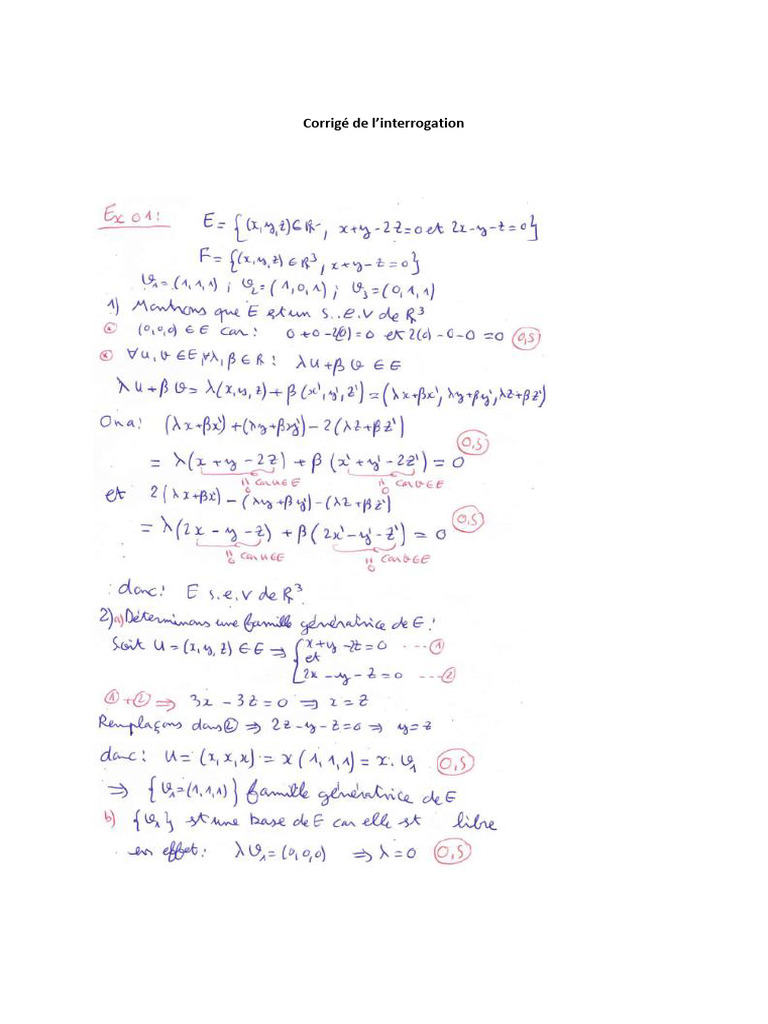 Corrigé de l'interrogation
Ex 01: E = {(x,y,z) ∈ R, x+y-2z=0 et 2x-y-z=0}
F = {(x,y,z) ∈ R³, x+y-z=0}
v₁=(1,1,1) ; v₂=(1,0,1) ; v₃=(0,1,1)
1) Montrons que E est un s.e.v de R³
(0,0,0) ∈ E car: 0+0-2(0)=0 et 2(0)-0-0=0 0,5
∀u,v ∈ E, ∀λ,β ∈ R: λu+βv ∈ E
λu+βv = λ(x,y,z)+β(x',y',z') = (λx+βx', λy+βy', λz+βz')
On a: (λx+βx')+(λy+βy')-2(λz+βz')
= λ(x+y-2z)+β(x'+y'-2z') = 0 0,5
0 car u∈E 0 car v∈E
et 2(λx+βx')-(λy+βy')-(λz+βz')
= λ(2x-y-z)+β(2x'-y'-z') = 0 0,5
0 car u∈E 0 car v∈E
donc: E s.e.v de R³
2) a) Déterminons une famille génératrice de E:
Soit u=(x,y,z) ∈ E ⇒ { x+y-2z=0 ---- ①
et
2x-y-z=0 ---- ②
①+② ⇒ 3x-3z=0 ⇒ x=z
Remplaçons dans ② ⇒ 2z-y-z=0 ⇒ y=z
donc: u=(x,x,x)=x(1,1,1)=x.v₁ 0,5
⇒ {v₁=(1,1,1)} famille génératrice de E
b) {v₁} est une base de E car elle est libre
en effet: λv₁=(0,0,0) ⇒ λ=0 0,5